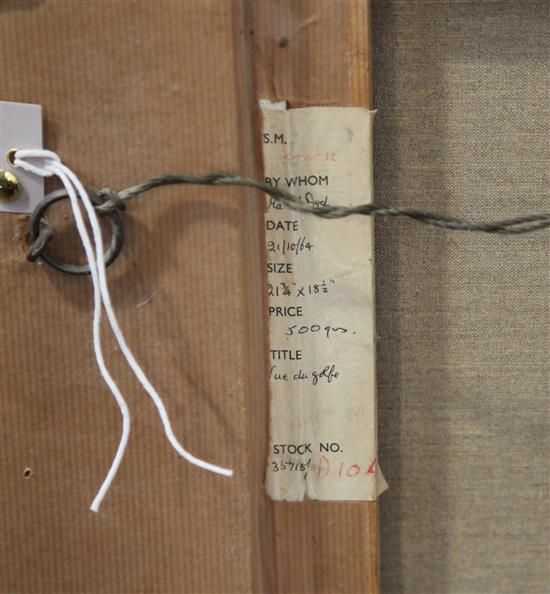 S.M.
STOCK
BY WHOM
DATE
21/10/64
SIZE
21¾" x 18½"
PRICE
500 gns.
TITLE
Vue du golfe
STOCK NO.
35715